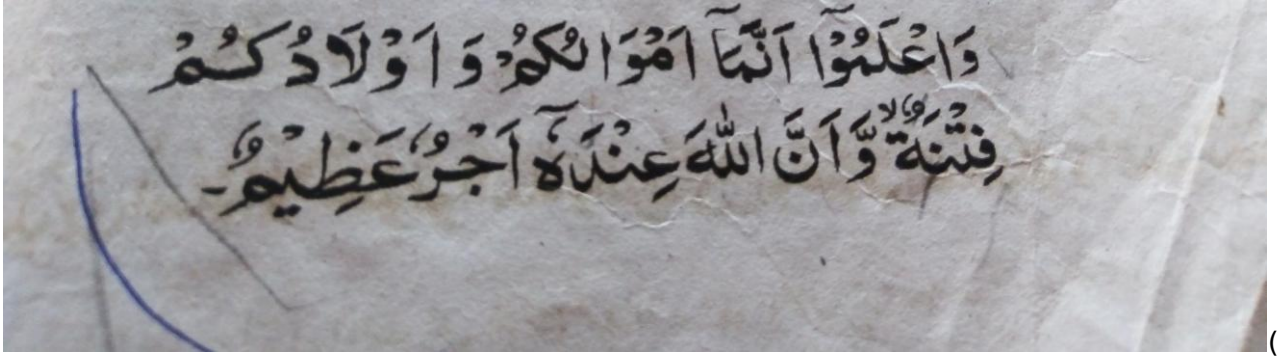 وَاعْلَمُوْٓا اَنَّمَآ اَمْوَالُكُمْ وَ اَوْلَادُكُمْ
فِتْنَةٌ ۙ وَّاَنَّ اللّٰهَ عِنْدَهٗٓ اَجْرٌ عَظِيْمٌ۔
(